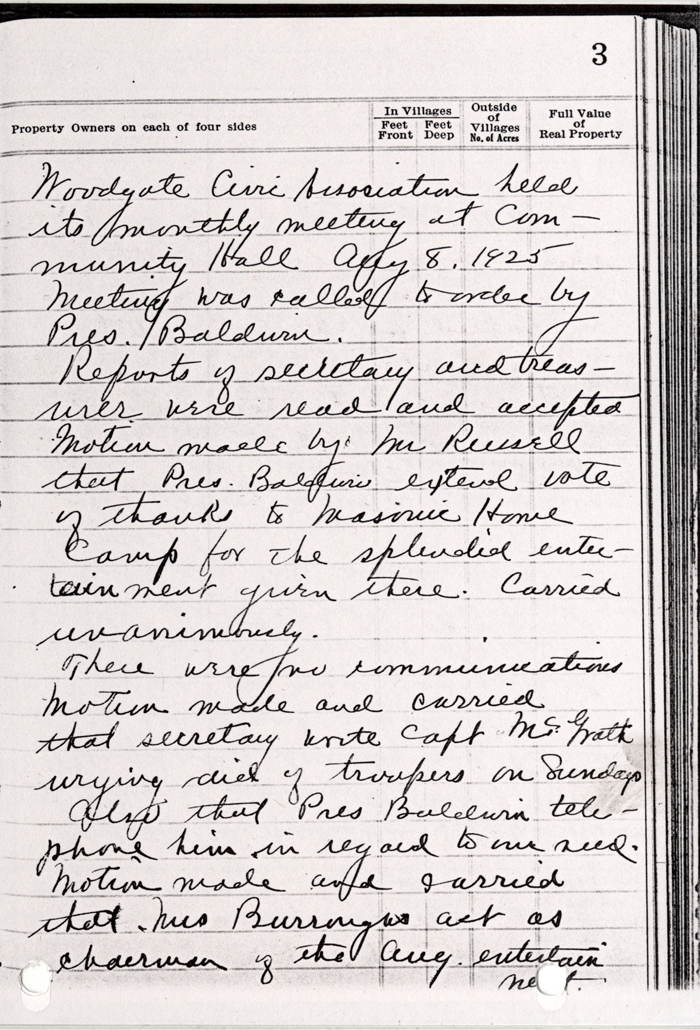 3
Property Owners on each of four sides
In Villages
Feet Front
Feet Deep
Outside of Villages No. of Acres
Full Value of Real Property
Woodgate Civic Association held
its monthly meeting at Com-
munity Hall Aug 8. 1925
Meeting was called to order by
Pres. Baldwin.
Reports of secretary and treas-
urer were read and accepted
Motion made by Mr Russell
that Pres. Baldwin extend vote
of thanks to Masonic Home
Camp for the splendid enter-
tainment given there. Carried
unanimously.
There were no communications
Motion made and carried
that secretary write Capt McGrath
urging aid of troopers on Sundays
Also that Pres Baldwin tele-
phone him in regard to our need.
Motion made and carried
that Mrs Burroughs act as
chairman of the Aug. entertain